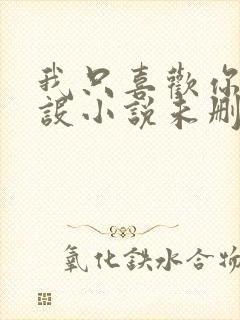 我只喜歡你
設小說未刪
氧化鉄水合物